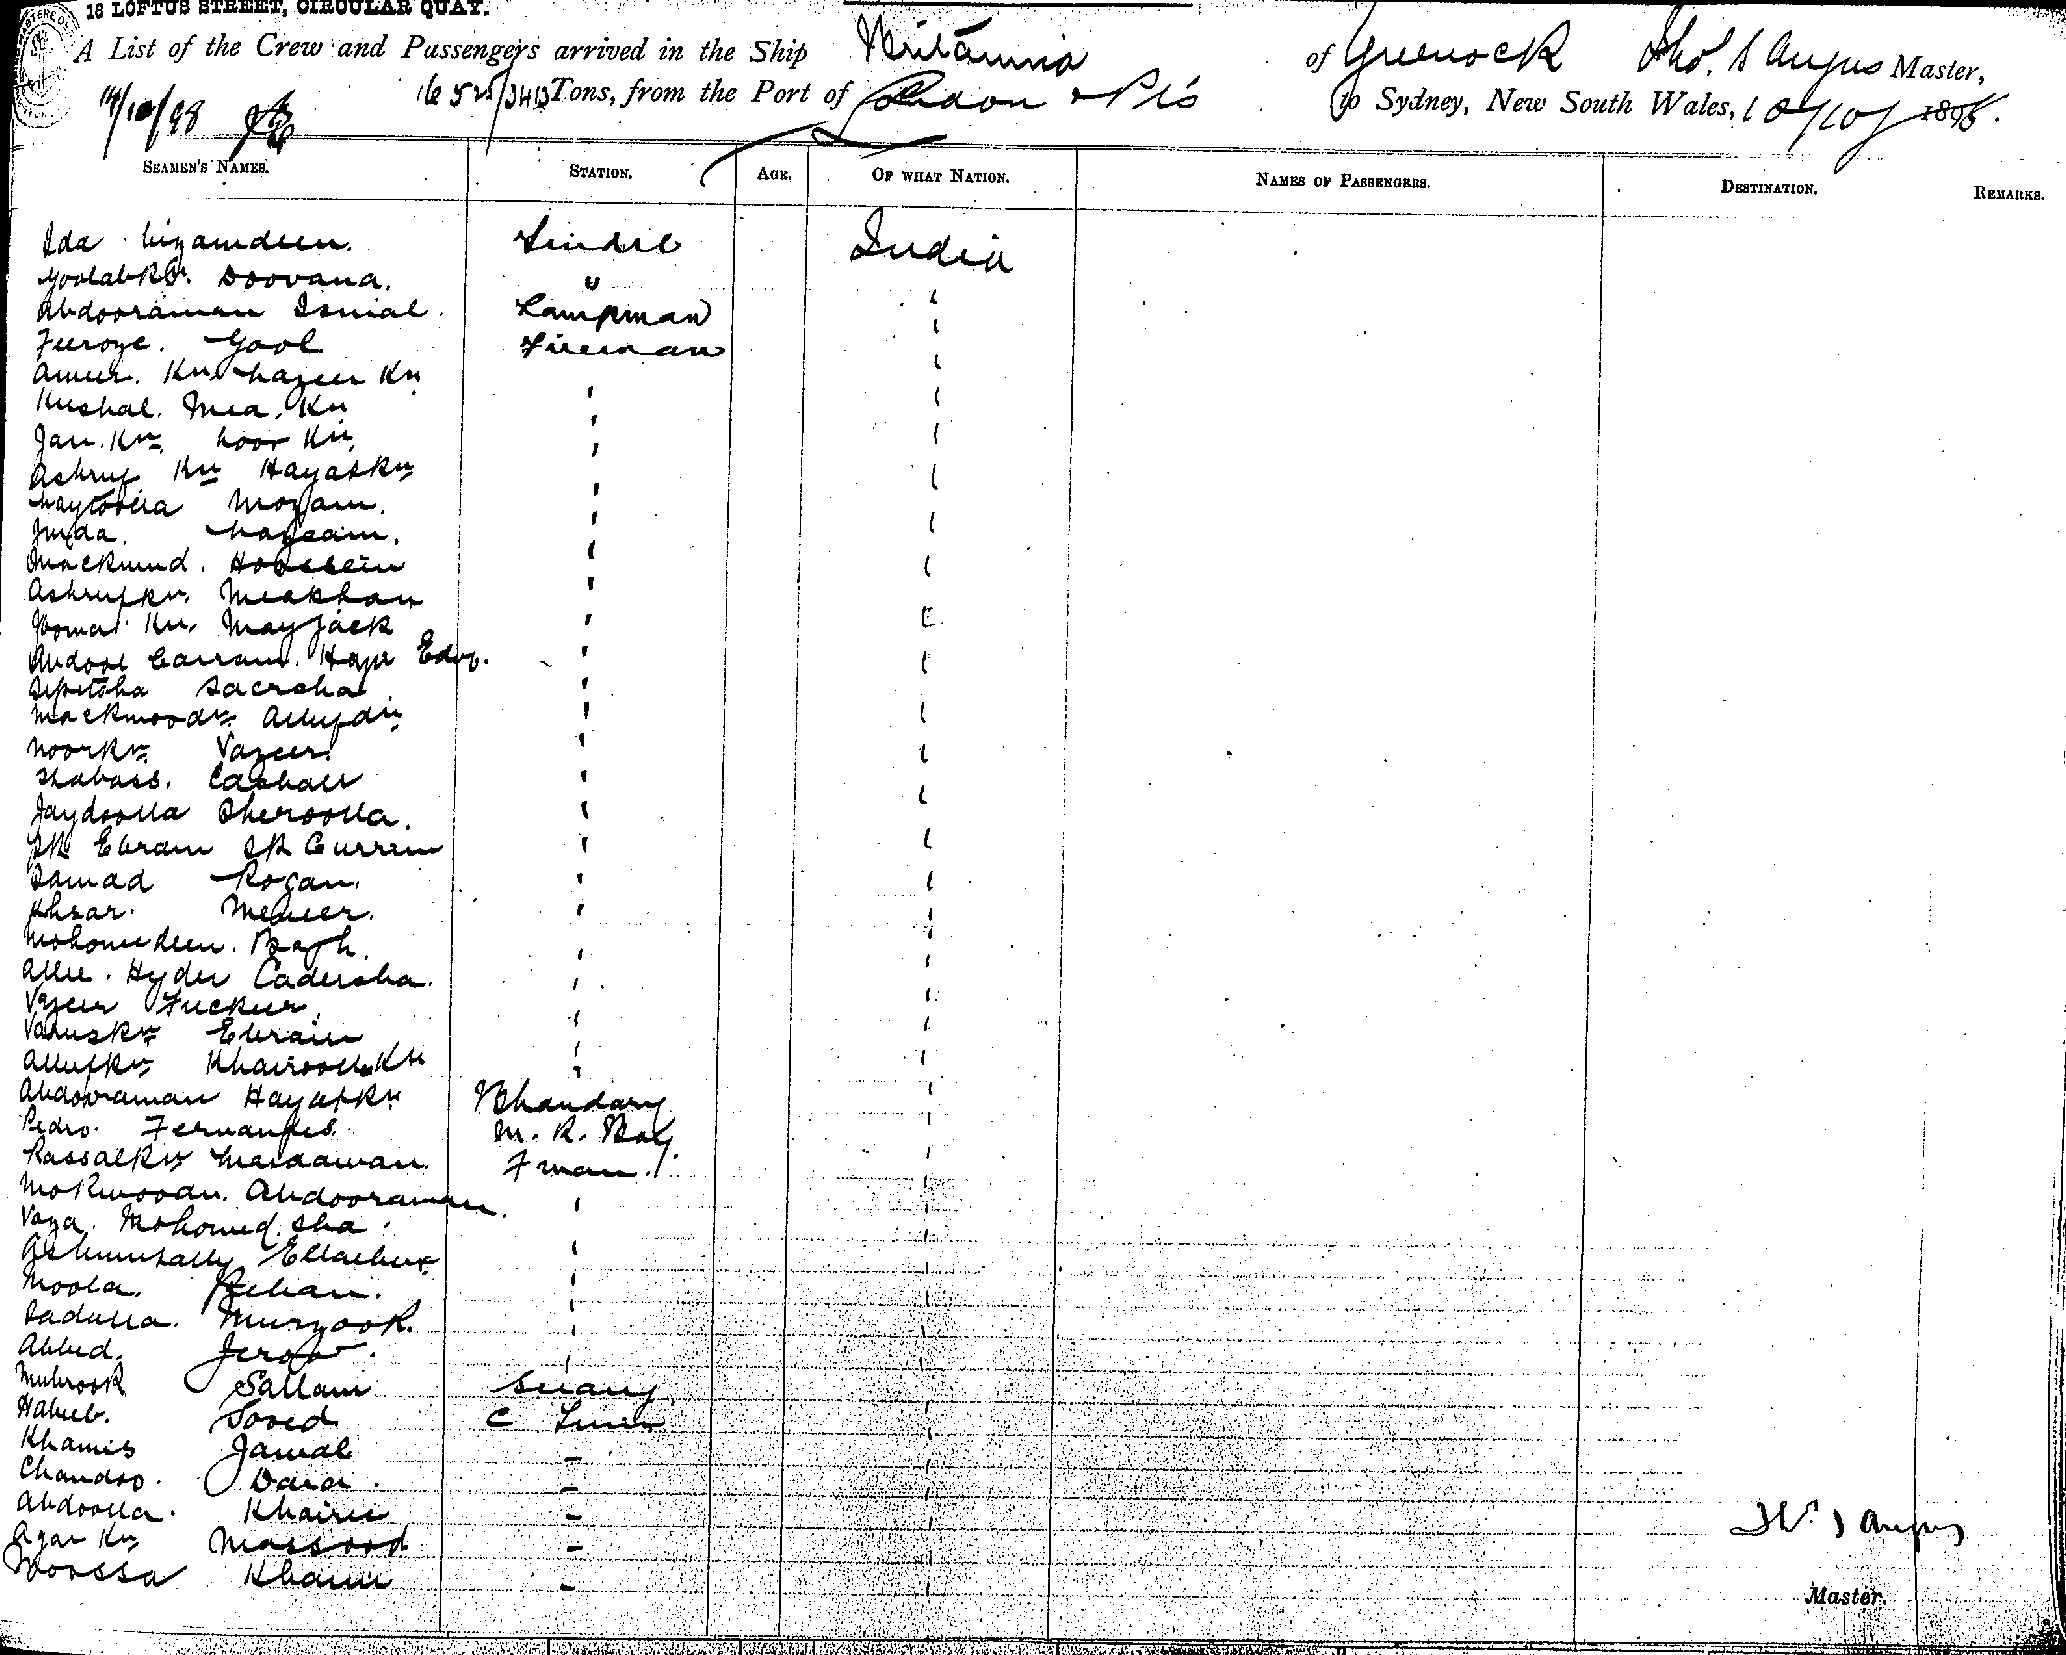 18 LOFTUS STREET, CIRCULAR QUAY.
A List of the Crew and Passengers arrived in the Ship Britannia of Greenock Tho. S Angus Master,
Tons, from the Port of London & Pts to Sydney, New South Wales, 10/10/ 1898.
14/10/98
SEAMEN'S NAMES. STATION. AGE. OF WHAT NATION. NAMES OF PASSENGERS. DESTINATION. REMARKS.
Ida Nizamdeen. Tindal India
Doovana. "
Abdooraman Ismal. Lampman
Feeroze. Gool Fireman
Ameer. Kn Nazeer Kn
Kushal. Mea. Kn
Jan. Kn Noor Kn
Ashruf Kn Hayatkn
Mozam.
Juda.
Mackmud. Hoossein
Ashrufkn. Meakhan
Kn. Mayjack
Abdool Carram. Edoo.
Sacrsha
Mackmoodn Allufdin
Noorkn Vazeer.
Shabass. Cashall
Jaydoolla Sheroolla.
Sk Ebram Sk Currem
Samad Rogan.
Khzar.
Mohomedeen. Bagh.
Allee. Hyder Cadersha.
Vazeer Fuckeer.
Ebraim
Allufkn Khairoolla Kn
Abdooraman Hayatkn Bhandary
Pedro. Fernandes. M. R. Boy.
Rassalkn Maidawan. Fman.
Mokmoodn. Abdooraman.
Vaza. Mohomed. Sha.
Moola. Rehan.
Sadulla. Murzook.
Abbed.
Mubrook Sallam Serang
Habeeb. Soved C Trimr
Khamis Jamal
Chandoo. Dara.
Abdoolla. Khairee
Azar Kn Massood
Moossa Khamis
Tho. S Angus
Master.